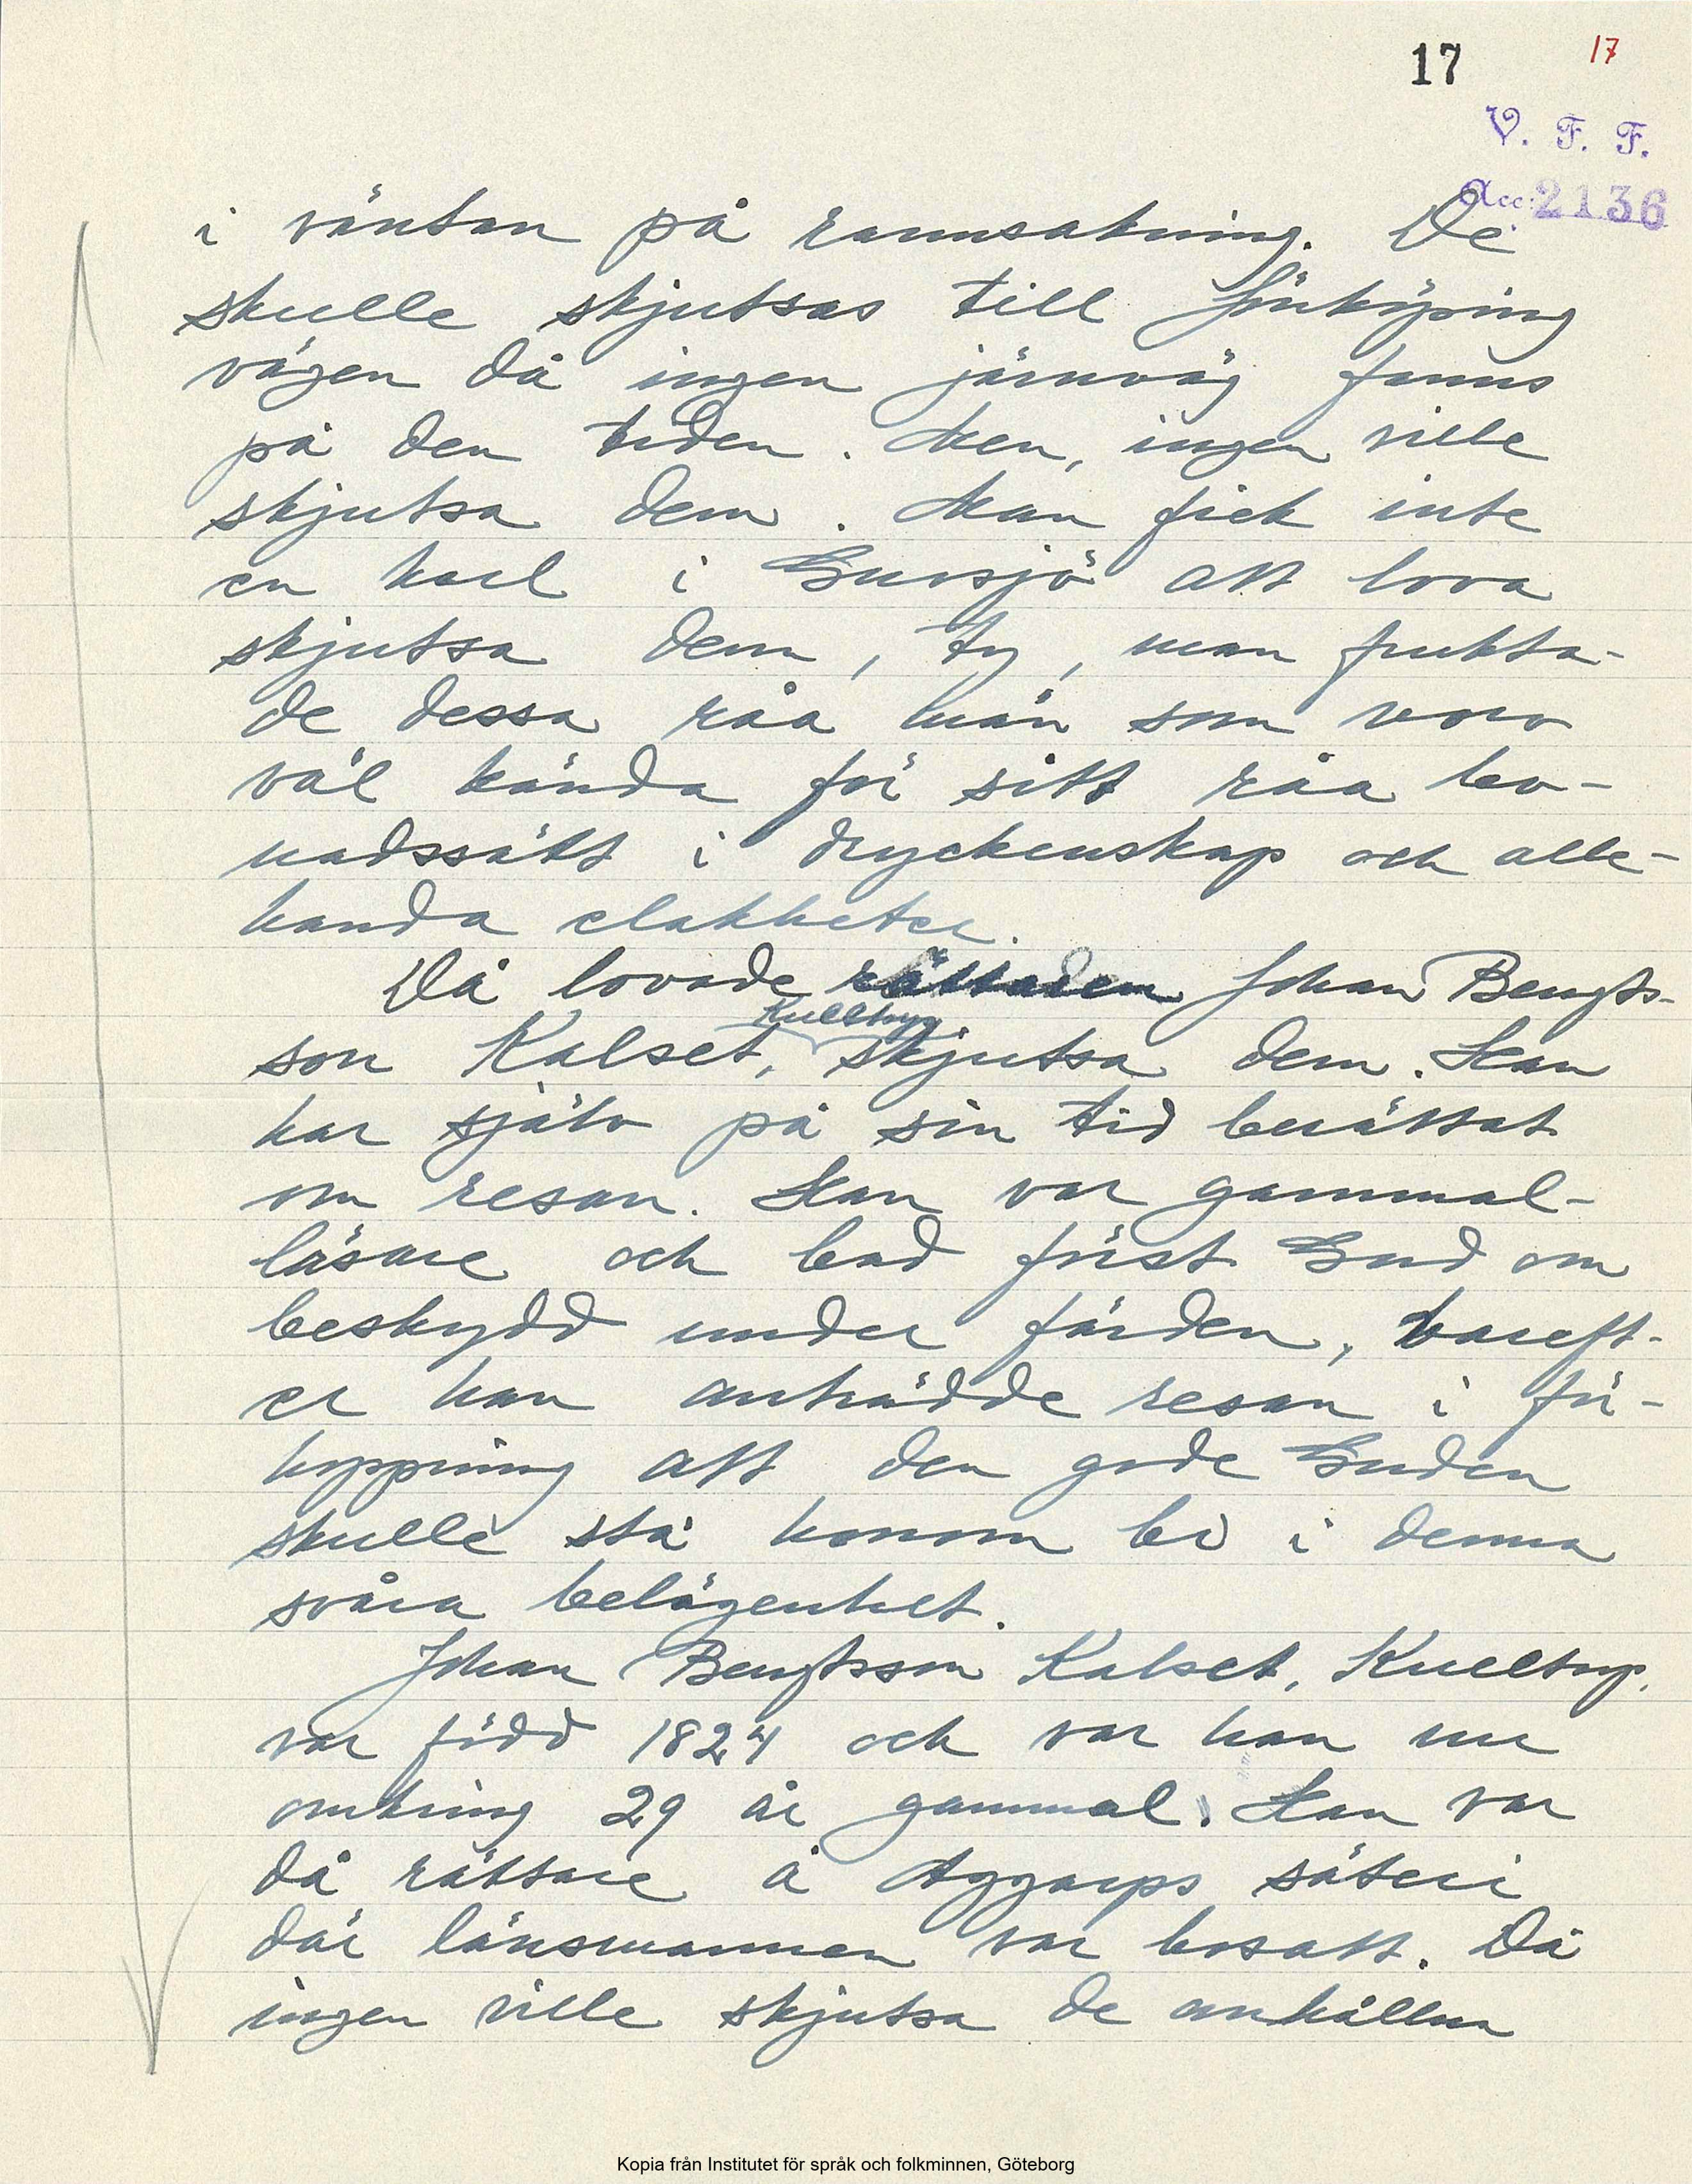 17 17
V. F. F.
Acc: 2136
i väntan på rannsakning. De
skulle skjutsas till Jönköping
vägen då ingen järnväg fanns
på den tiden. Men, ingen ville
skjutsa dem. Man fick inte
en karl i Gunsjö att lova
skjutsa dem, ty, man frukta-
de dessa råa män som voro
väl kända för sitt råa lev-
nadssätt i dryckenskap och alle-
handa elakheter.
Då lovade rättaren Johan Bengts-
Kulltrup
son Kalset, skjutsa dem. Han
har själv på sin tid berättat
om resan. Han var gammal-
läsare och bad först Gud om
beskydd under färden, vareft-
er han anträdde resan i för-
hoppning att den gode Guden
skulle stå honom bi i denna
svåra belägenhet.
Johan Bengtsson Kalset, Kulltrup,
var född 1824 och var han nu
omkring 29 år gammal. Han var
då rättare å Aggarps säteri
där länsmannen var bosatt. Då
ingen ville skjutsa de anhållna
Kopia från Institutet för språk och folkminnen, Göteborg